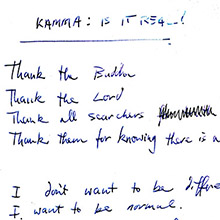 KAMMA: IS IT REAL!
Thank the Buddha
Thank the Lord
Thank all searchers
Thank them for knowing there is a
I don't want to be
I want to be normal.